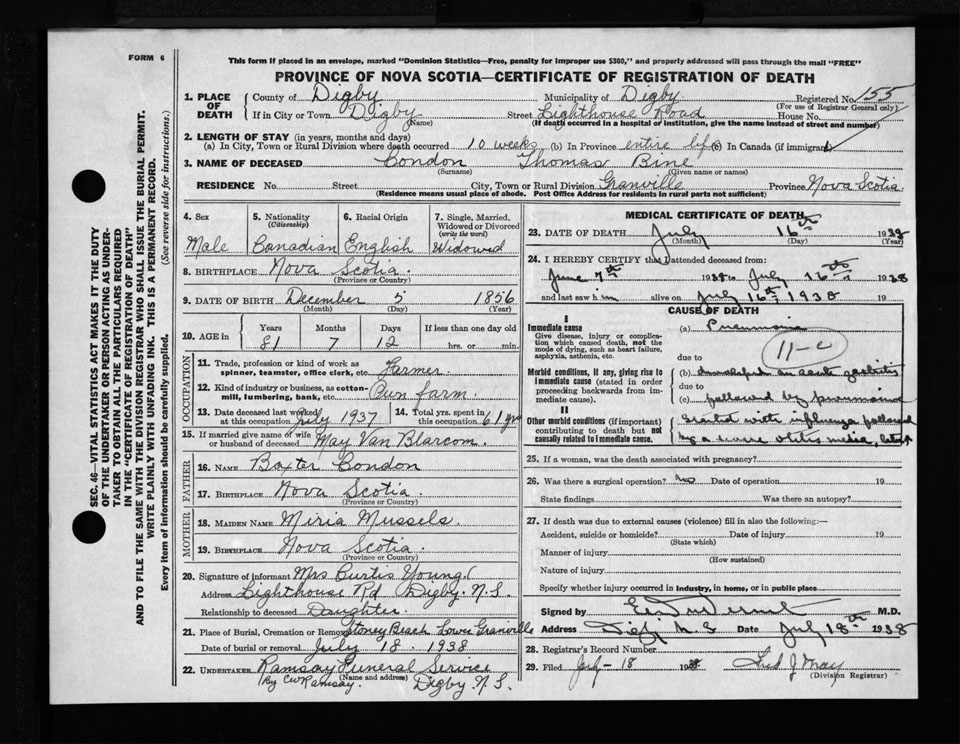 FORM 6
This form if placed in an envelope, marked "Dominion Statistics—Free, penalty for improper use $300," and properly addressed will pass through the mail "FREE"
PROVINCE OF NOVA SCOTIA—CERTIFICATE OF REGISTRATION OF DEATH
1. PLACE OF DEATH
County of Digby Municipality of Digby Registered No. 155
(For use of Registrar General only)
If in City or Town Digby Street Lighthouse Road House No.
(Name) (If death occurred in a hospital or institution, give the name instead of street and number)
2. LENGTH OF STAY (in years, months and days)
(a) In City, Town or Rural Division where death occurred 10 weeks (b) In Province entire life (c) In Canada (if immigrant)
3. NAME OF DECEASED Condon Thomas Bine
(Surname) (Given name or names)
RESIDENCE No. Street City, Town or Rural Division Granville Province Nova Scotia
(Residence means usual place of abode. Post Office Address for residents in rural parts not sufficient)
4. Sex Male
5. Nationality (Citizenship) Canadian
6. Racial Origin English
7. Single, Married, Widowed or Divorced (write the word) Widowed
8. BIRTHPLACE Nova Scotia.
(Province or Country)
9. DATE OF BIRTH December 5 1856
(Month) (Day) (Year)
10. AGE in Years Months Days If less than one day old
81 7 12 hrs. or min.
OCCUPATION
11. Trade, profession or kind of work as spinner, teamster, office clerk, etc. Farmer.
12. Kind of industry or business, as cotton-mill, lumbering, bank, etc. Own farm.
13. Date deceased last worked at this occupation July 1937
14. Total yrs. spent in this occupation 61 yrs
15. If married give name of wife or husband of deceased May Van Blarcom.
FATHER
16. NAME Baxter Condon
17. BIRTHPLACE Nova Scotia.
(Province or Country)
MOTHER
18. MAIDEN NAME Miria Mussels.
19. BIRTHPLACE Nova Scotia.
(Province or Country)
20. Signature of informant Mrs Curtis Young
Address Lighthouse Rd Digby. N.S.
Relationship to deceased Daughter.
21. Place of Burial, Cremation or Removal Stoney Beach Lower Granville
Date of burial or removal July 18. 1938
22. UNDERTAKER Ramsay Funeral Service
(Name and address)
By CW Ramsay. Digby N.S.
MEDICAL CERTIFICATE OF DEATH
23. DATE OF DEATH July 16th 1938
(Month) (Day) (Year)
24. I HEREBY CERTIFY that I attended deceased from:
June 7th 1938 to July 16th 1938
and last saw him alive on July 16th 1938 19
CAUSE OF DEATH
I
Immediate cause
Give disease, injury or complication which caused death, not the mode of dying, such as heart failure, asphyxia, asthenia, etc.
(a) Pneumonia
11-c
due to
Morbid conditions, if any, giving rise to immediate cause (stated in order proceeding backwards from immediate cause).
(b) developed an acute
due to
(c) followed by pneumonia
II
Other morbid conditions (if important) contributing to death but not causally related to immediate cause.
started with influenza followed
by a severe otitis media,
25. If a woman, was the death associated with pregnancy?
26. Was there a surgical operation? no Date of operation 19
State findings Was there an autopsy?
27. If death was due to external causes (violence) fill in also the following:—
Accident, suicide or homicide? Date of injury 19
(State which)
Manner of injury
(How sustained)
Nature of injury
Specify whether injury occurred in industry, in home, or in public place
Signed by M.D.
Address Digby N S Date July 18th 1938
28. Registrar's Record Number
29. Filed July - 18 1938 Fred J May
(Division Registrar)
SEC. 46—VITAL STATISTICS ACT MAKES IT THE DUTY
OF THE UNDERTAKER OR PERSON ACTING AS UNDER-
TAKER TO OBTAIN ALL THE PARTICULARS REQUIRED
IN THE "CERTIFICATE OF REGISTRATION OF DEATH"
AND TO FILE THE SAME WITH THE DIVISION REGISTRAR WHO SHALL ISSUE THE BURIAL PERMIT.
WRITE PLAINLY WITH UNFADING INK. THIS IS A PERMANENT RECORD.
Every item of information should be carefully supplied. (See reverse side for instructions).